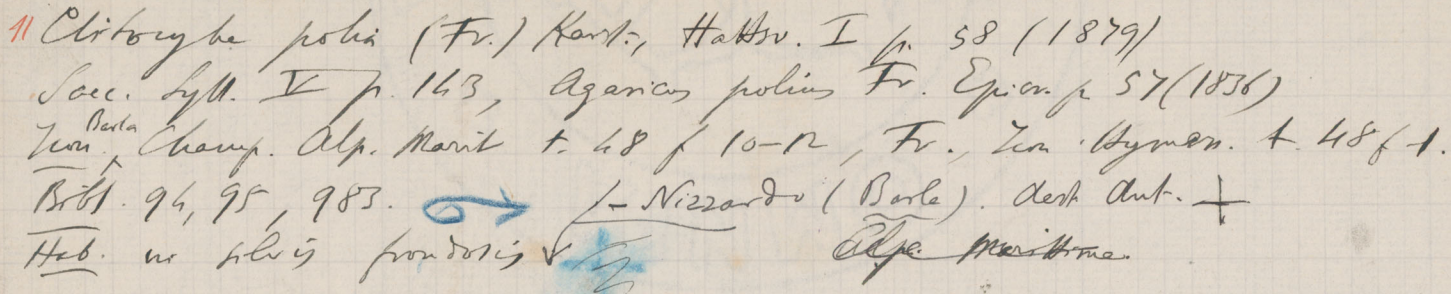 11 Clitocybe polia (Fr.) Karst., Hattsv. I p. 58 (1879)
Sacc. Syll. V p. 143, Agaricus polius Fr. Epicr. p 57 (1836)
Icon. Barla Champ. Alp. Marit t. 48 f 10-12, Fr., Icon. Hymen. t. 48 f 1.
Bibl. 94, 95, 983. Nizzardo (Barla). dest Aut.
Hab. in silvis frondosis Alpi Marittime.